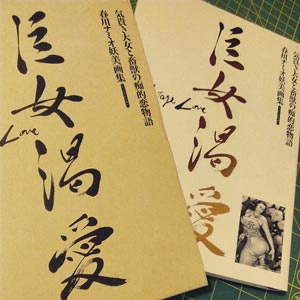 気貴き大女と畜獣の痴的恋物語
春川ナミオ妖美画集
巨女渇愛
Love
気貴き大女と畜獣の痴的恋物語
春川ナミオ妖美画集
巨女渇愛
Love